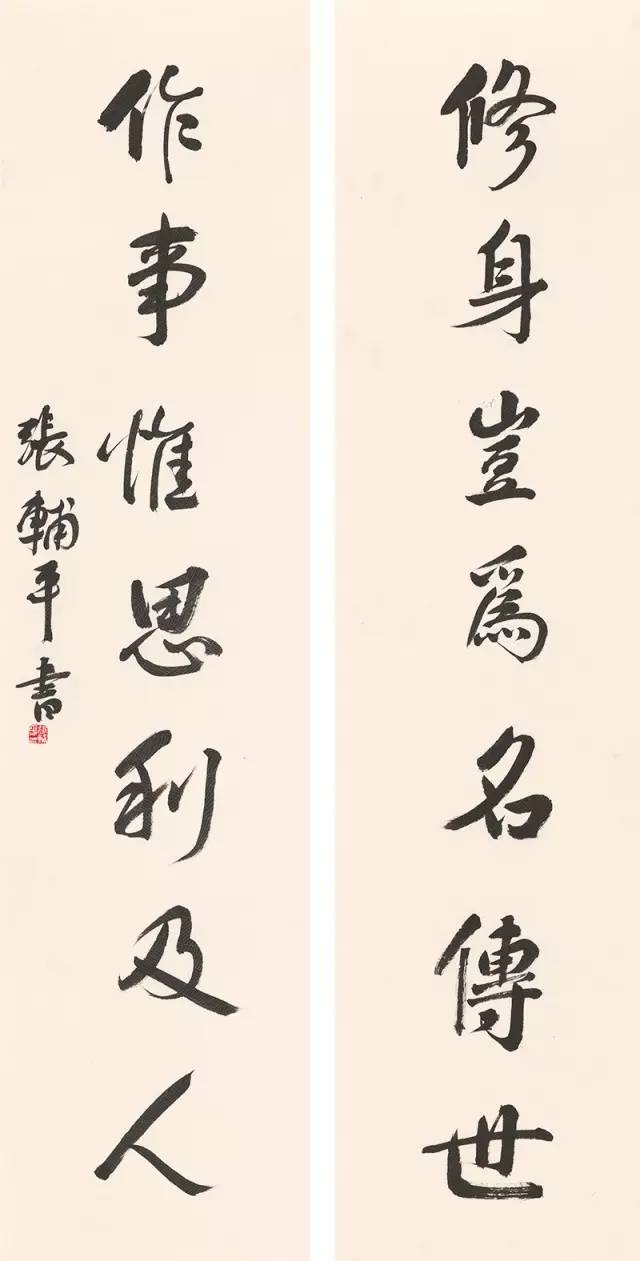 修身豈爲名傳世
作事惟思利及人
張輔平書